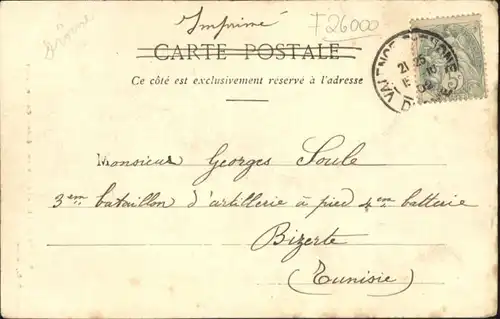 Drôme
Imprimé
F26000
CARTE POSTALE
Ce côté est exclusivement réservé à l'adresse
VALENCE DRÔME
21 25
E 10
02
5
Monsieur Georges Soule
3em bataillon d'artillerie à pied 4em batterie
Bizerte
(Tunisie)